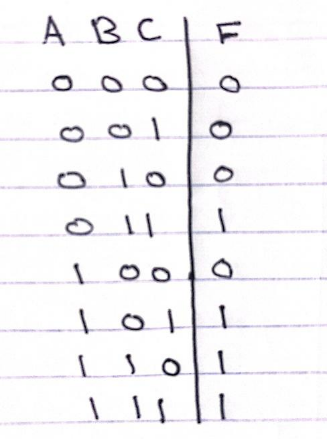 A B C | F
0 0 0 | 0
0 0 1 | 0
0 1 0 | 0
0 1 1 | 1
1 0 0 | 0
1 0 1 | 1
1 1 0 | 1
1 1 1 | 1